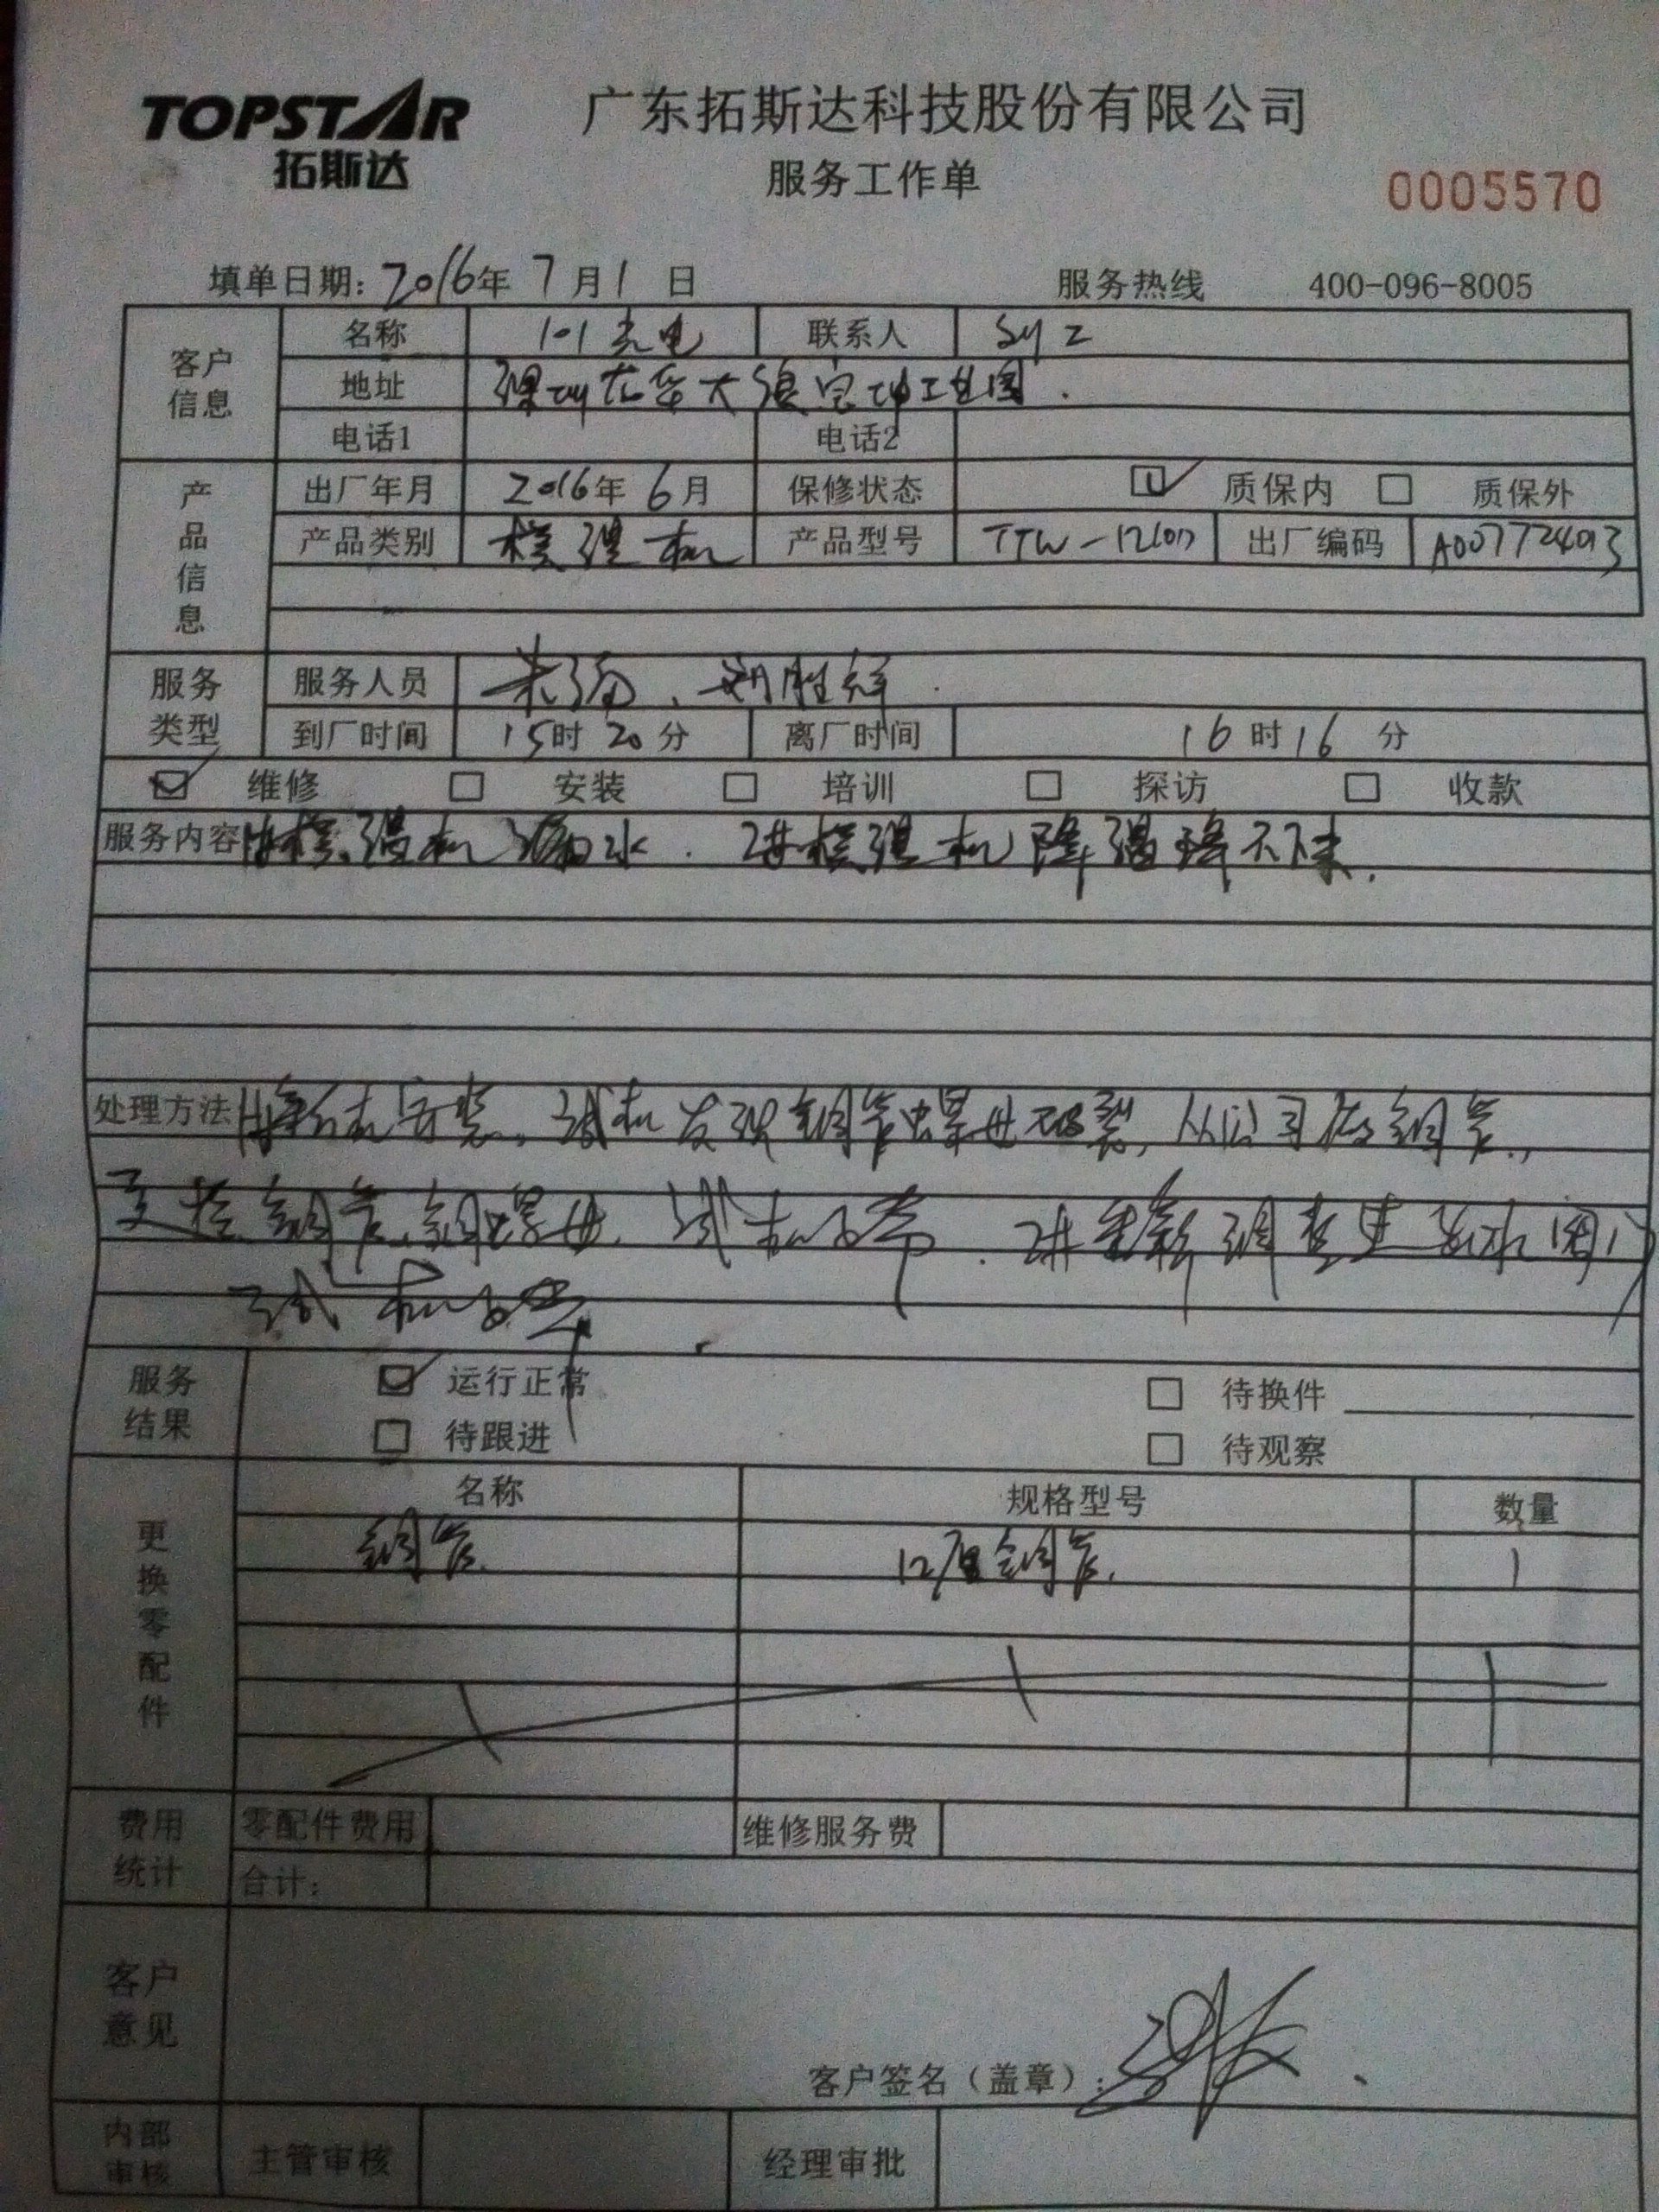 TOPSTAR
拓斯达
广东拓斯达科技股份有限公司
服务工作单
0005570
填单日期: 2016年 7月1日 服务热线 400-096-8005
客户信息
名称 101光电 联系人
地址 深圳龙华大浪宝坤工业园.
电话1 电话2
产品信息
出厂年月 2016年6月 保修状态 质保内 质保外
产品类别 模温机 产品型号 出厂编码
服务类型
服务人员 朱
到厂时间 15时20分 离厂时间 16时16分
维修 安装 培训 探访 收款
服务内容 1#模温机漏水. 2#模温机降温降不下来.
处理方法 试机发现铜管螺母破裂, 从公司 铜管,
更换铜管,铜螺母, 试机正常. 2#重新调整
试机正常
服务结果
运行正常 待换件
待跟进 待观察
更换零配件
名称 规格型号 数量
铜管. 12 铜管. 1
费用统计
零配件费用 维修服务费
合计:
客户意见
客户签名（盖章）:
内部审核
主管审核 经理审批